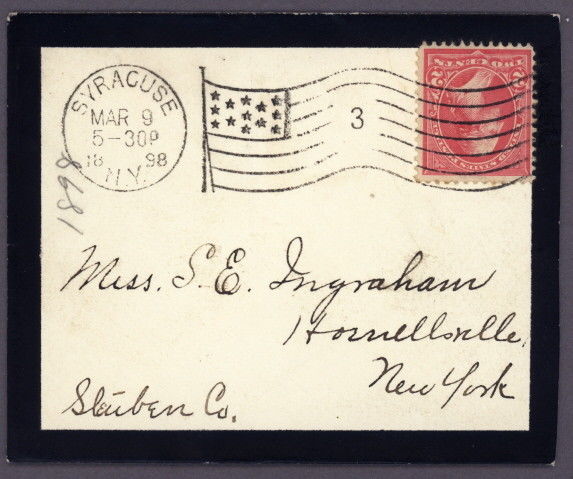 SYRACUSE
MAR 9
5-30P
18 98
N.Y.
3
TWO CENTS
2 2
1898
Miss. S. E. Ingraham
Hornellsville,
New York
Steuben Co.